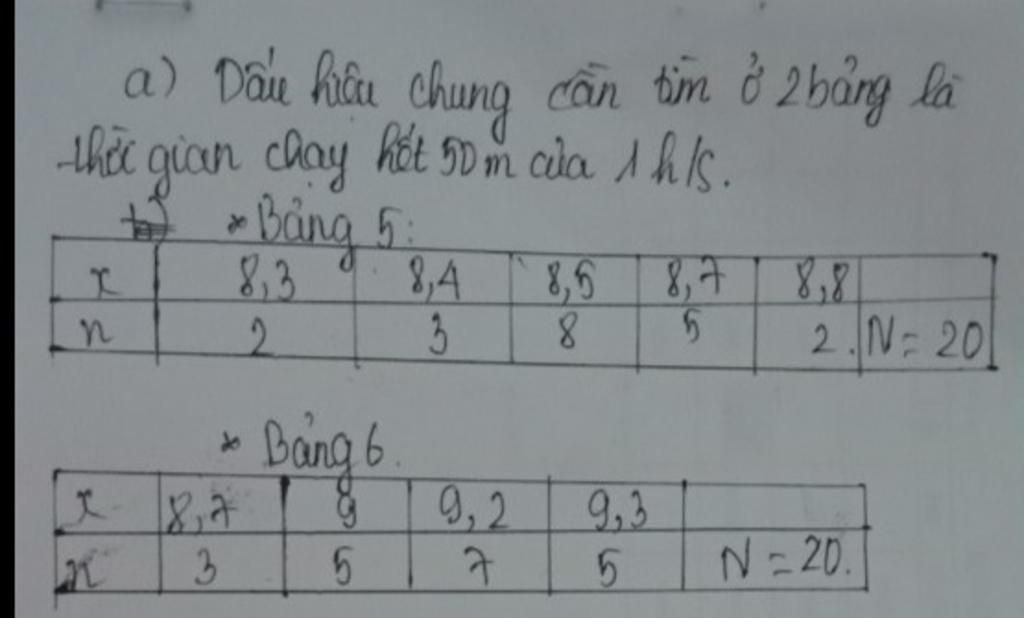 a) Dấu hiệu chung cần tìm ở 2 bảng là
thời gian chạy hết 50 m của 1 h/s.
* Bảng 5:
x 8,3 8,4 8,5 8,7 8,8
n 2 3 8 5 2. N = 20
* Bảng 6.
x 8,7 9 9,2 9,3
n 3 5 7 5 N = 20.